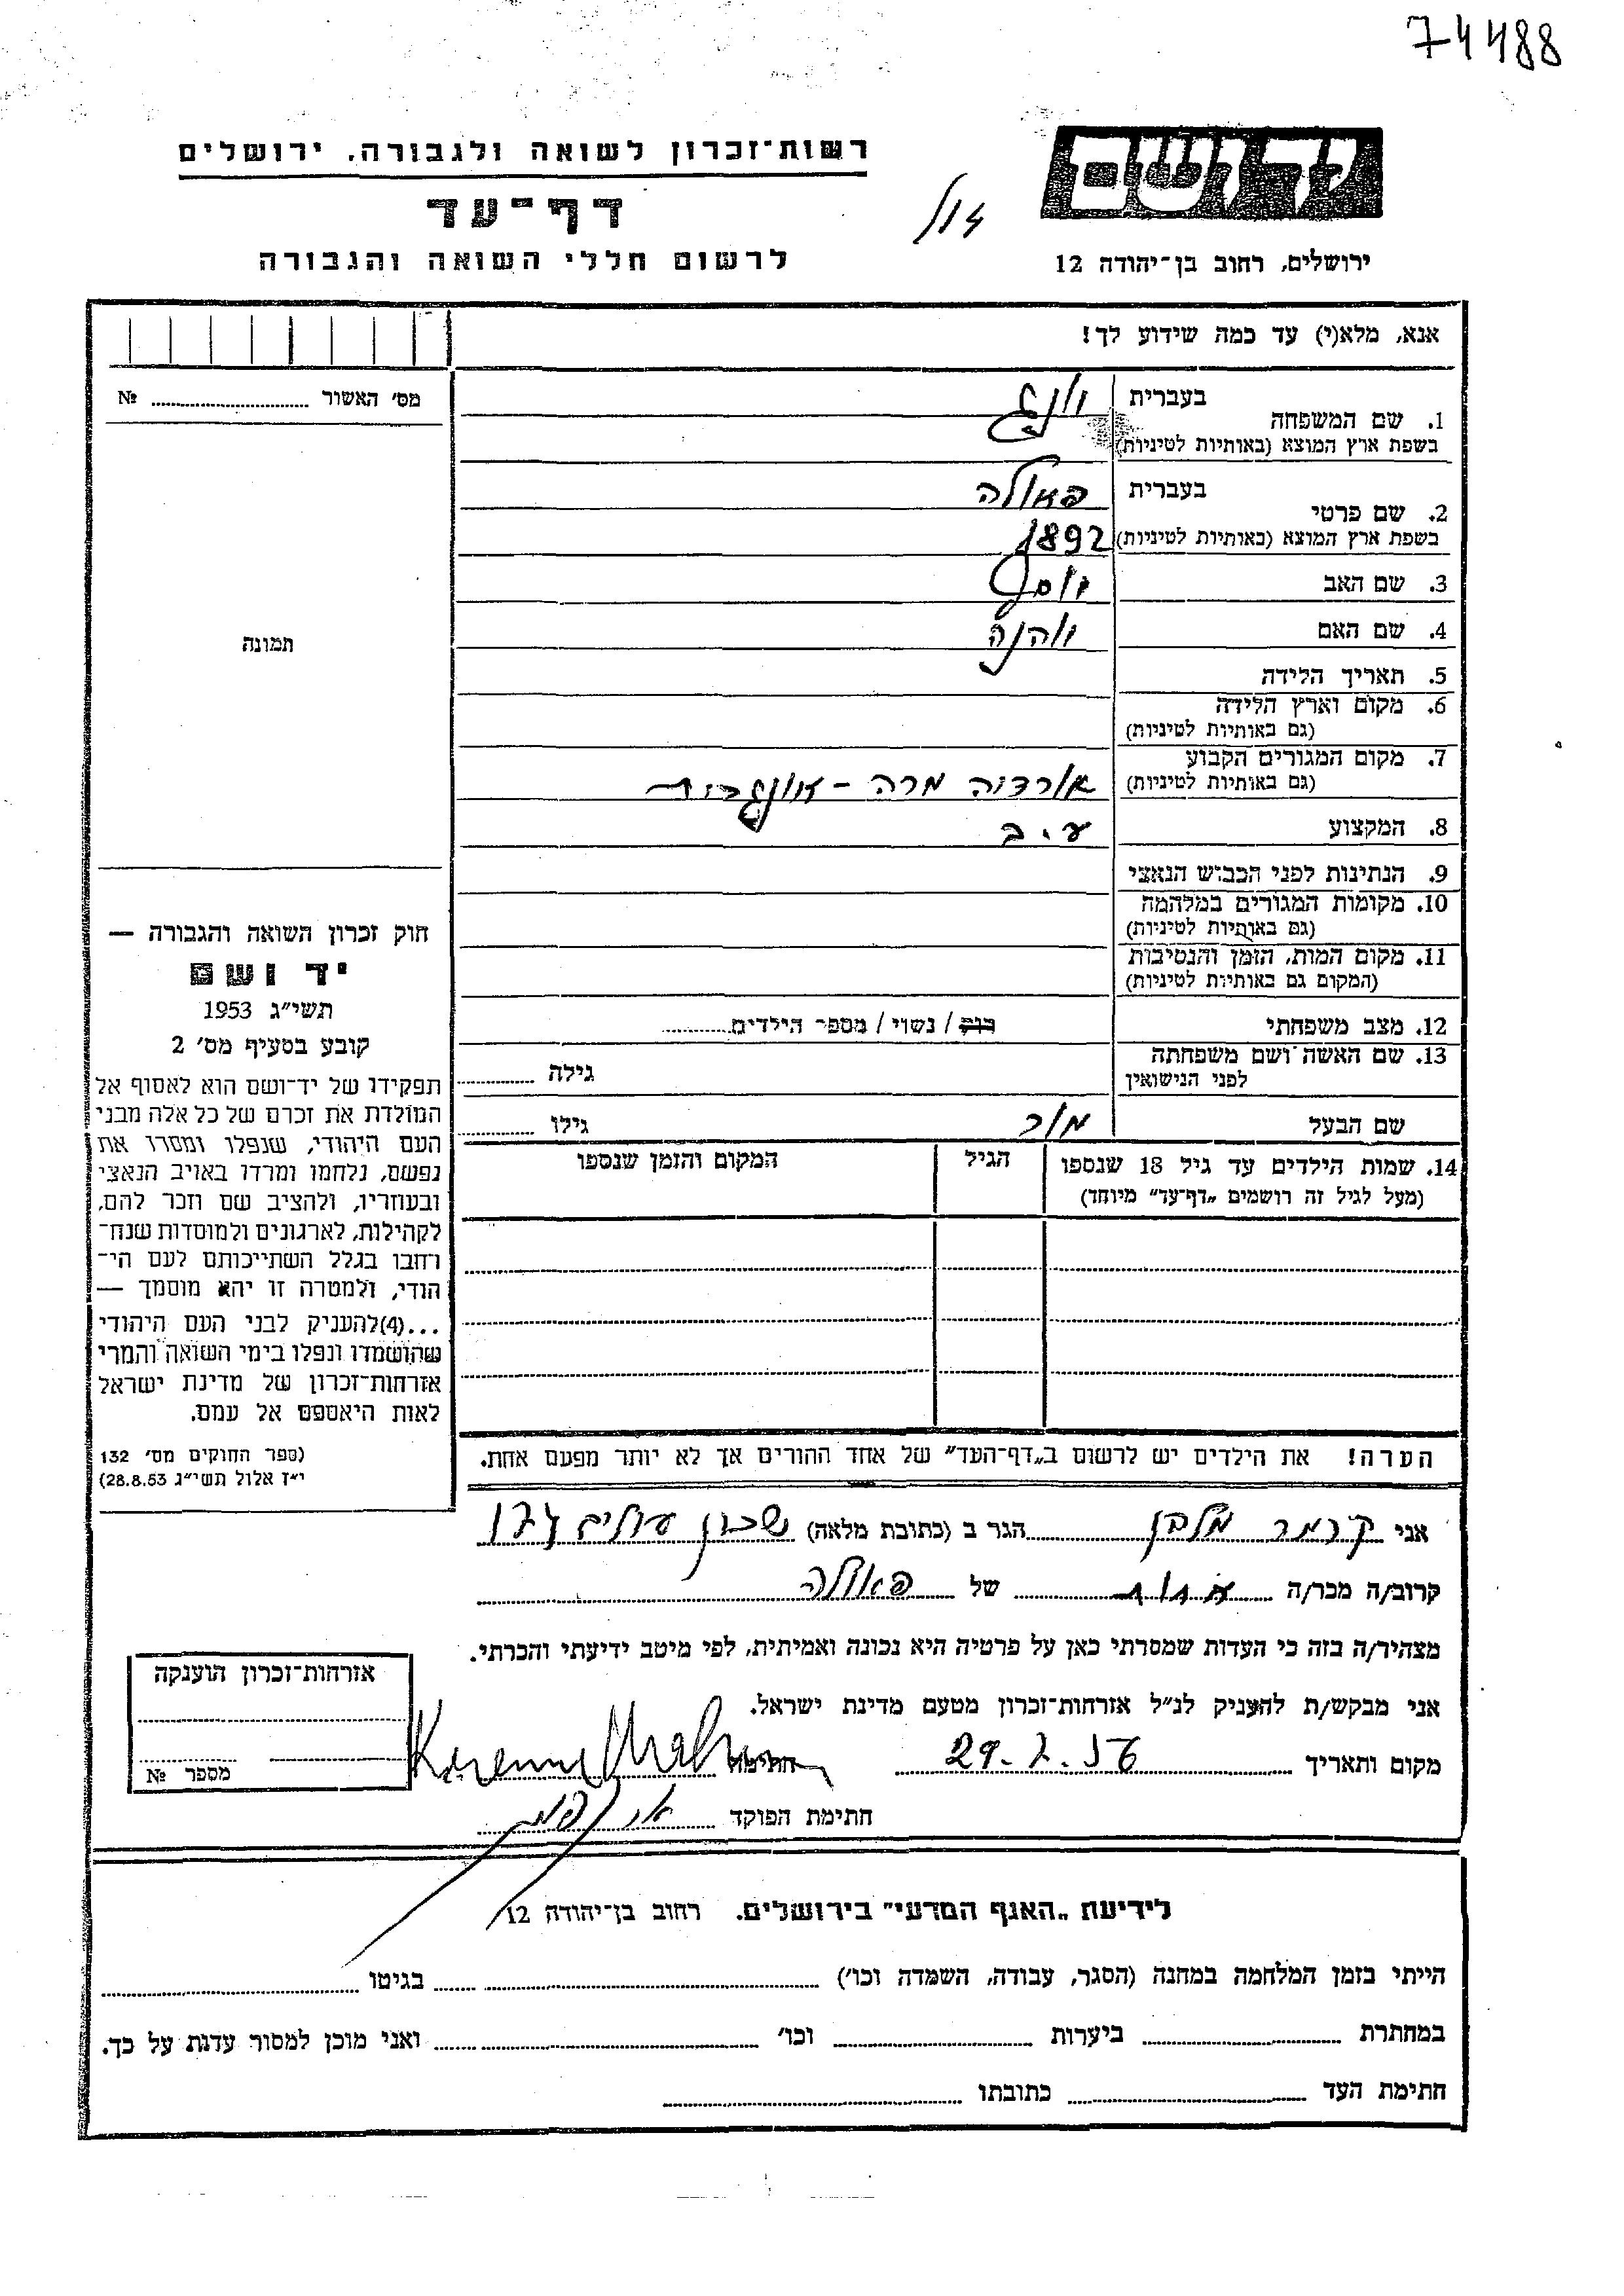 74488
יד ושם
רשות־זכרון לשואה ולגבורה, ירושלים
דף־עד
לרשום חללי השואה והגבורה
ירושלים, רחוב בן־יהודה 12
אנא, מלא(י) עד כמה שידוע לך!
מס׳ האשור ........ №
תמונה
1. שם המשפחה
בעברית
בשפת ארץ המוצא (באותיות לטיניות)
2. שם פרטי
בעברית פאולה
בשפת ארץ המוצא (באותיות לטיניות) 1892
3. שם האב יוסף
4. שם האם
5. תאריך הלידה
6. מקום וארץ הלידה
(גם באותיות לטיניות)
7. מקום המגורים הקבוע
(גם באותיות לטיניות)
8. המקצוע ע.ב
9. הנתינות לפני הכבוש הנאצי
10. מקומות המגורים במלחמה
(גם באותיות לטיניות)
11. מקום המות, הזמן והנסיבות
(המקום גם באותיות לטיניות)
12. מצב משפחתי רוק / נשוי / מספר הילדים........
13. שם האשה ושם משפחתה
לפני הנישואין
גילה ........
שם הבעל גילו ........
14. שמות הילדים עד גיל 18 שנספו הגיל המקום והזמן שנספו
(מעל לגיל זה רושמים „דף־עד״ מיוחד)
הערה! את הילדים יש לרשום ב„דף־העד״ של אחד ההורים אך לא יותר מפעם אחת.
חוק זכרון השואה והגבורה —
יד ושם
תשי״ג 1953
קובע בסעיף מס׳ 2
תפקידו של יד־ושם הוא לאסוף אל
המולדת את זכרם של כל אלה מבני
העם היהודי, שנפלו ומסרו את
נפשם, נלחמו ומרדו באויב הנאצי
ובעוזריו, ולהציב שם וזכר להם,
לקהילות, לארגונים ולמוסדות שנח־
רחבו בגלל השתייכותם לעם הי־
הודי, ולמטרה זו יהא מוסמך —
...(4)להעניק לבני העם היהודי
שהושמדו ונפלו בימי השואה והמרי
אזרחות־זכרון של מדינת ישראל
לאות היאספם אל עמם.
(ספר החוקים מס׳ 132
י״ז אלול תשי״ג 28.8.53)
אני קרמר מלבן הגר ב (כתובת מלאה) שכון עולים
קרוב/ה מכר/ה של פאולה
מצהיר/ה בזה כי העדות שמסרתי כאן על פרטיה היא נכונה ואמיתית, לפי מיטב ידיעתי והכרתי.
אני מבקש/ת להעניק לנ״ל אזרחות־זכרון מטעם מדינת ישראל.
מקום ותאריך 29.7.56 חתימה
חתימת הפוקד
אזרחות־זכרון הוענקה
מספר №
לידיעת „האגף המדעי״ בירושלים. רחוב בן־יהודה 12
הייתי בזמן המלחמה במחנה (הסגר, עבודה, השמדה וכו׳) ........ בגיטו ........
במחתרת ........ ביערות ........ וכו׳ ........ ואני מוכן למסור עדות על כך.
חתימת העד ........ כתובתו ........